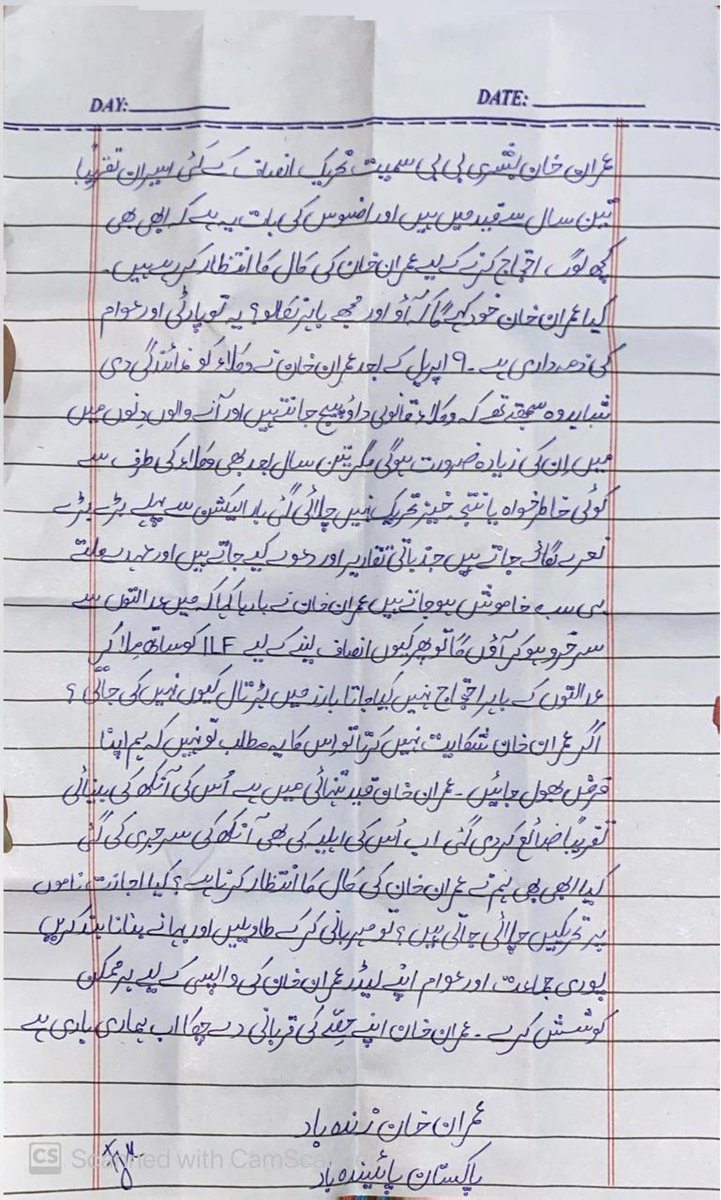 DAY: DATE:
عمران خان بشری بی بی سمیت تحریک انصاف کے کئی اسیران تقریباً
تین سال سے قید میں ہیں اور افسوس کی بات یہ ہے کہ ابھی بھی
کچھ لوگ احتجاج کرنے کے لیے عمران خان کی کال کا انتظار کر رہے ہیں۔
کیا عمران خان خود کہے گا کہ آؤ اور مجھے باہر نکالو؟ یہ تو پارٹی اور عوام
کی ذمہ داری ہے۔ ۹ اپریل کے بعد عمران خان نے وکلاء کو نمائندگی دی
شاید وہ سمجھتے تھے کہ وکلاء قانونی داؤ پیچ جانتے ہیں اور آنے والوں دنوں میں
میں ان کی زیادہ ضرورت ہوگی مگر تین سال بعد بھی وکلاء کی طرف سے
کوئی خاطر خواہ یا نتیجہ خیز تحریک نہیں چلائی گئی بار الیکشن سے پہلے بڑے بڑے
نعرے لگائے جاتے ہیں جذباتی تقاریر اور دعوے کیے جاتے ہیں اور عہدے ملتے
ہی سب خاموش ہو جاتے ہیں عمران خان نے بارہا کہا کہ میں عدالتوں سے
سرخرو ہو کر آؤں گا تو پھر کیوں انصاف لینے کے لیے ILF کو ساتھ ملا کر
عدالتوں کے باہر احتجاج نہیں کیا جاتا بارز میں ہڑتال کیوں نہیں کی جاتی؟
اگر عمران خان شکایت نہیں کرتا تو اس کا یہ مطلب تو نہیں کہ ہم اپنا
فرض بھول جائیں۔ عمران خان قید تنہائی میں ہے اُس کی آنکھ کی بینائی
تقریباً ضائع کر دی گئی اب اُس کی اہلیہ کی بھی آنکھ کی سرجری کی گئی
کیا ابھی بھی ہم نے عمران خان کی کال کا انتظار کرنا ہے؟ کیا اجازت ناموں
پر تحریکیں چلائی جاتی ہیں؟ تو مہربانی کر کے تاویلیں اور بہانے بنانا بند کریں
پوری جماعت اور عوام اپنے لیڈر عمران خان کی واپسی کے لیے ہر ممکن
کوشش کرے۔ عمران خان اپنے حصّے کی قربانی دے چکا اب ہماری باری ہے
عمران خان زندہ باد
پاکستان پائیندہ باد
CS Scanned with CamScanner